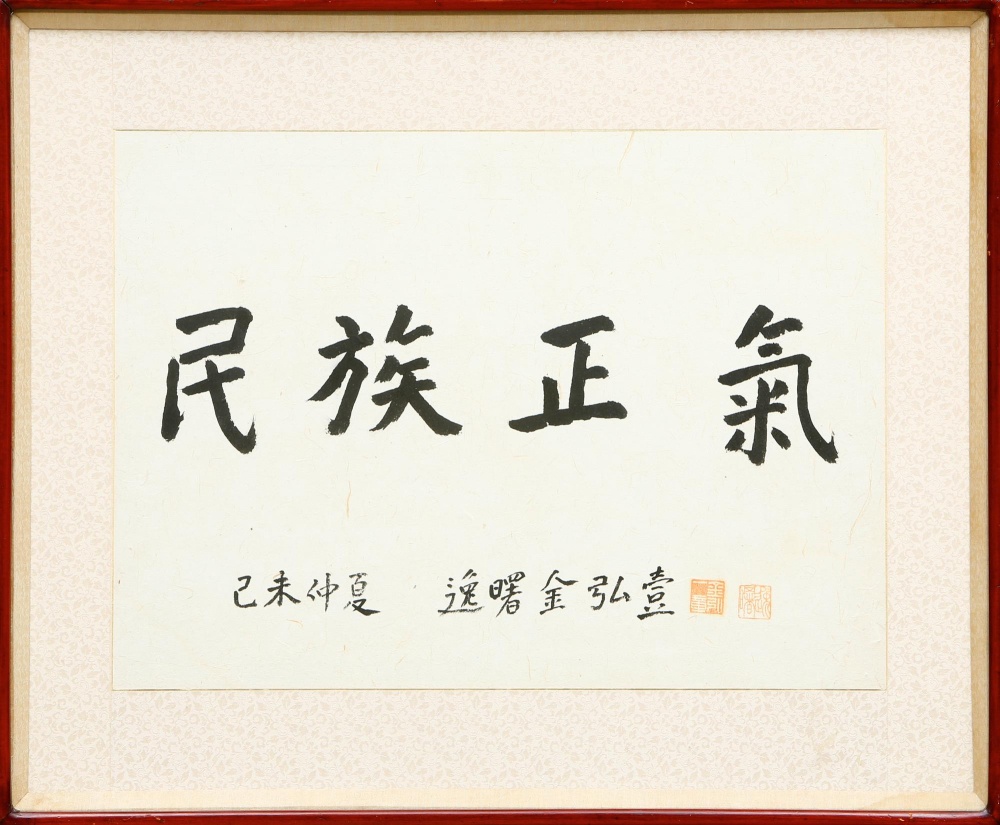 民族正氣
己未仲夏 逸曙金弘壹